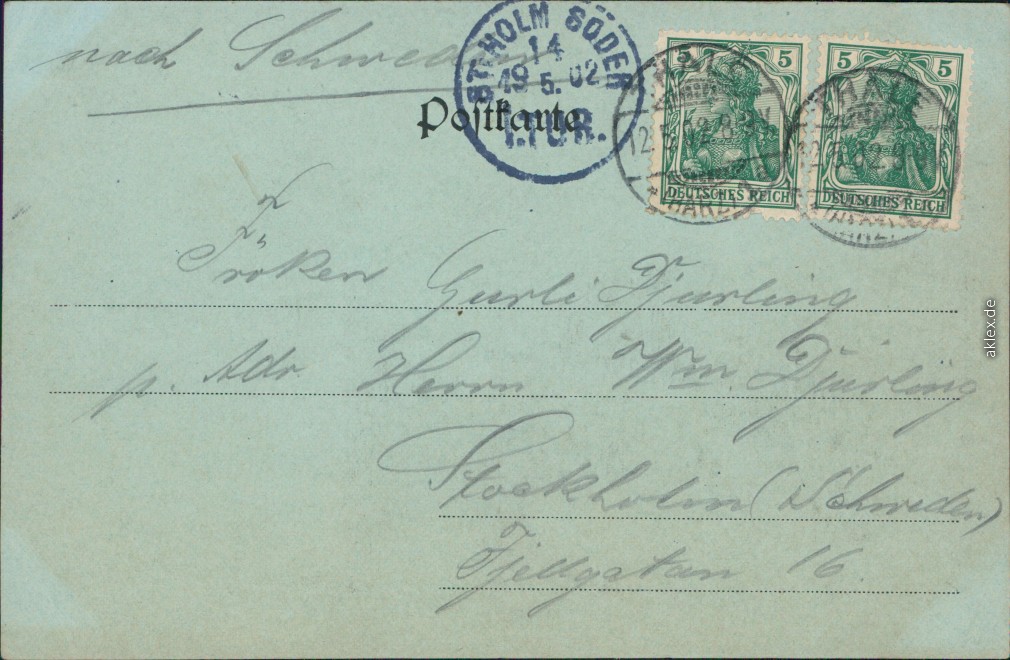 nach Schweden
STHOLM SÖDER
14
19 5. 02
1.TUR.
Postkarte
5 5
DEUTSCHES REICH
5 5
DEUTSCHES REICH
THALE
12.5.02.8
(HARZ)
THALE
12.5.02
(HARZ)
Fröken Gurli Djurling
p. Adr. Herrn Wm. Djurling
Stockholm (Schweden)
Fjellgatan 16.
aklex.de